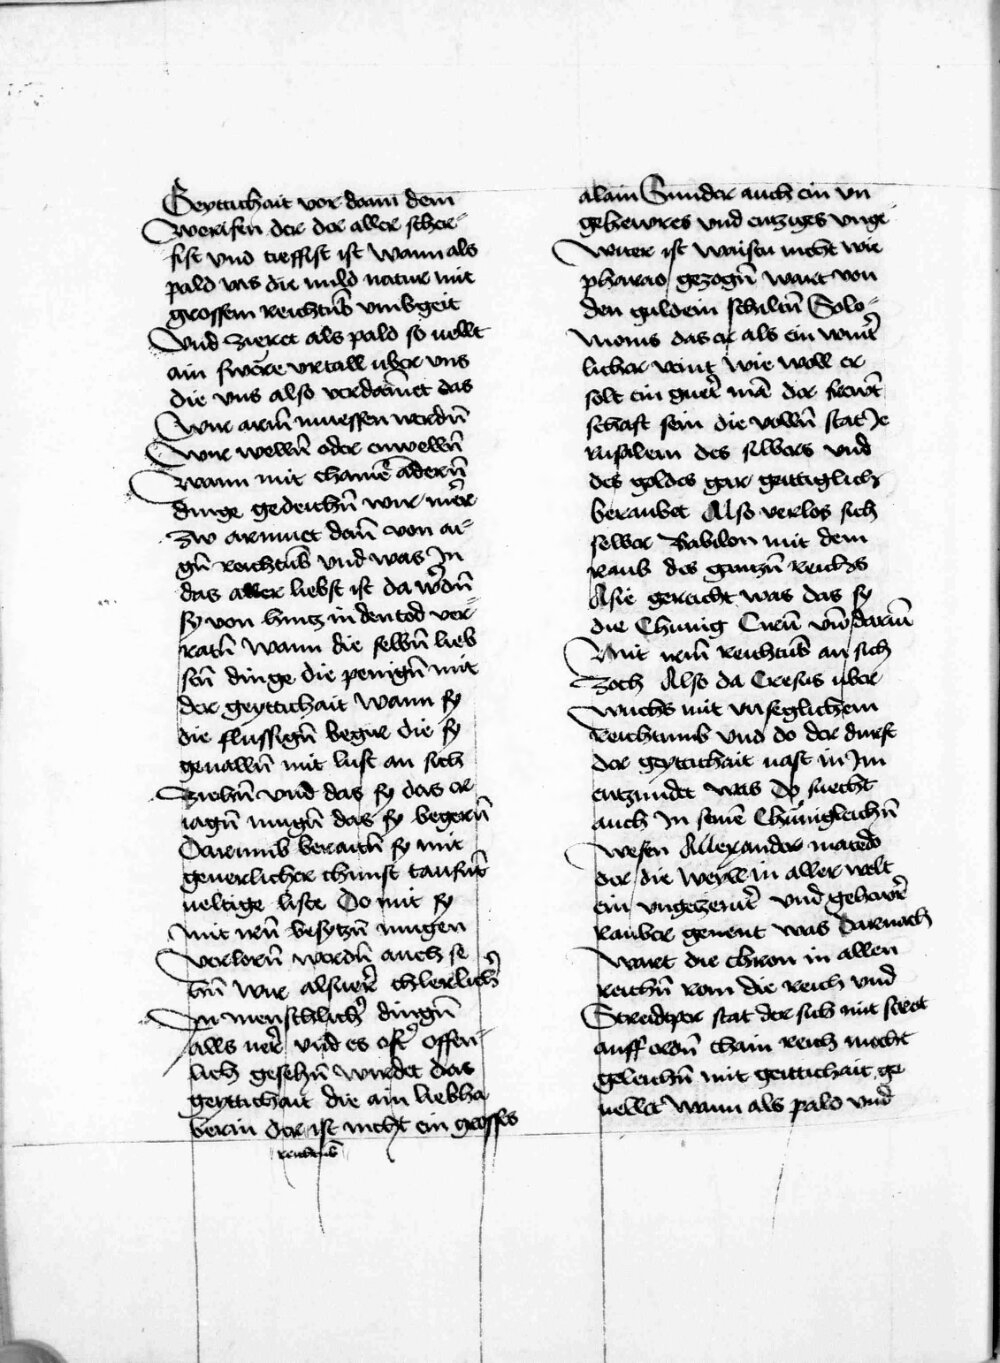 Geyttichait vor dann dem
Zwerlsen der der aller scher-
fist vnd tieffist ist wann als
pald vns die mild natur mit
grossem reichtūb vmbgeit
Vnd zieret als pald so vellt
ain swēre vrtaill vber vns
die vns also verdam̄et das
Wir arm̄ muessen werdn̄
Wir welln̄ oder enwelln̄
Wann mit chainē andern̄
dinge gedeichn̄ wir mer̄
zw armuet dan̄ von ai-
gn̄ reichtūb vnd was In
das aller liebst ist da w̄dn̄
sy von hintz in den tod ver-
ratn̄ Wann die selbn̄ lieb
sen̄ dinge die penign̄ mit
der geyttichait Wann sy
die flussign̄ begir die sy
gewalln̄ mit lust an sich
Ziehn̄ vnd das sy das er
iagn̄ mugn̄ das sy begern̄
Darumb beraitn̄ sy mit
geuerlicher chunst tausn̄t
ueltige liste Do mit sy
mit irn̄ besytzn̄ mugen
Verlorn̄ werdn̄ auch se
hn̄ Wir alsuer̄ chlerlich̄
In menschlich̄ dingn̄
alls uer̄ vnd es oft̄ offen-
lich gesehn̄ wirdet das
geyttichait die ain liebha
berin der ist nicht ein grosses
reichtūb
alain Sunder auch ein vn
gehewres vnd ewtziges vnge
Witer ist Waistu nicht wie
pharao gezogn̄ wart von
den guldein schiltn̄ Solo-
mons das er als ein wint̄
licher veint wie woll er
solt ein guet̄ mā der frewt̄
schaft sein die volln̄ stat Je
rusalem des silbers vnd
des goldes gar geittiglich
beraubet Also verlos sich
selber Babilon mit dem
raub des gantzn̄ reichs
Asie gereicht was das sy
die Chunig Cirū vn̄ dariū
Mit irm̄ reichtūb an sich
Zoch Also da Cresus vber
Wuchs mit vnseglichem
Reichtumb vnd do der durst
der geyttichait vast in Im
entzundet was Do suecht
auch In seinē Chunigleichn̄
Wesen Allexander macedo
der die Weyll in aller welt
ein vngetzemt̄ vnd gehewr̄
rauber genent was Darnach
Wart die chron in allen
reichn̄ rom die reich vnd
Streidper stat der sich mit seret
auff ordn̄ chain reich mocht
geleichn̄ mit geittichait ge
uellet Wann als pald vnd̄